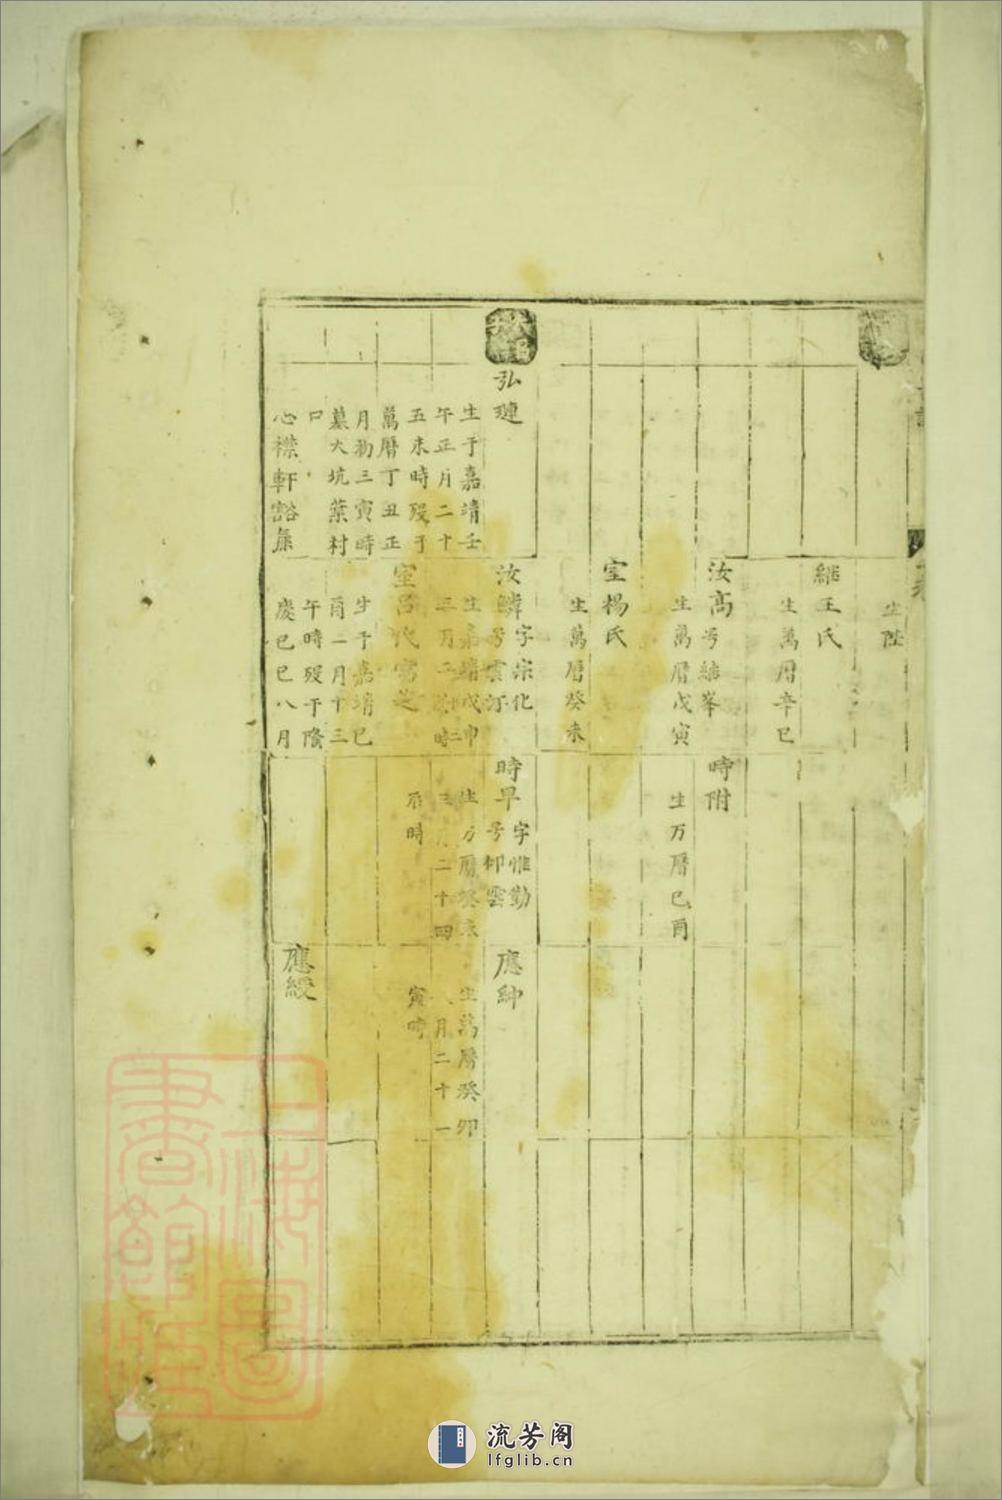 生陞
繼王氏
生萬曆辛巳
汝高号繼峯
生萬曆戊寅
時附
生万曆己酉
室楊氏
生萬曆癸未
弘璉
生于嘉靖壬
午正月二十
五未時歿于
萬曆丁丑正
月初三寅時
墓大坑葉村
尸
心襟軒豁
汝鱗字宗化
生嘉靖戊申
室呂氏
生于嘉靖己
酉一月十三
午時歿于隆
慶己巳八月
時早字惟勤
号仰雲
生万曆癸未
二十四
辰時
應紳
生萬曆癸卯
八月二十一
寅時
應綬
上海圖書館藏
流芳阁
lfglib.cn